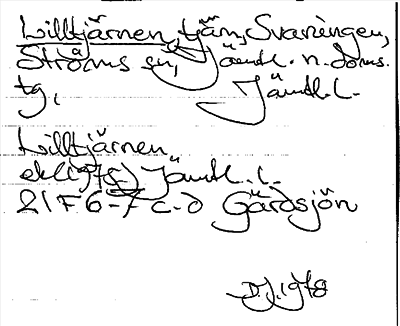 Lilltjärnen, tjärn, Svaningen,
Ströms sn, Jämtl. n. doms.
tg, Jämtl. l.
Lilltjärnen
ekl 1978, Jämtl. l.
21F 6-7 c-d Gärdsjön
D.J. 1978